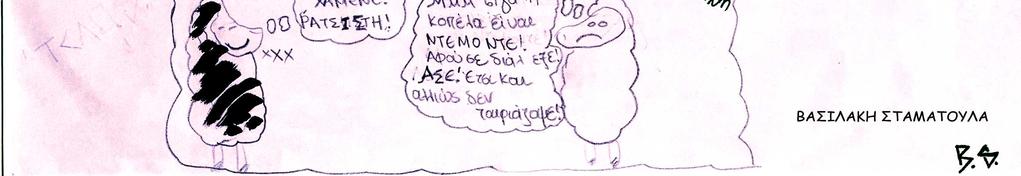 ΡΑΤΣΙΣΤΗ!
xxx
κοπέλα είναι
ΝΤΕΜΟΝΤΕ!
Αφού σε διάλεξε!
ΑΣΕ! Έτσι και
αλλιώς δεν
ταιριάζαμε!
ΒΑΣΙΛΑΚΗ ΣΤΑΜΑΤΟΥΛΑ
Β. S.